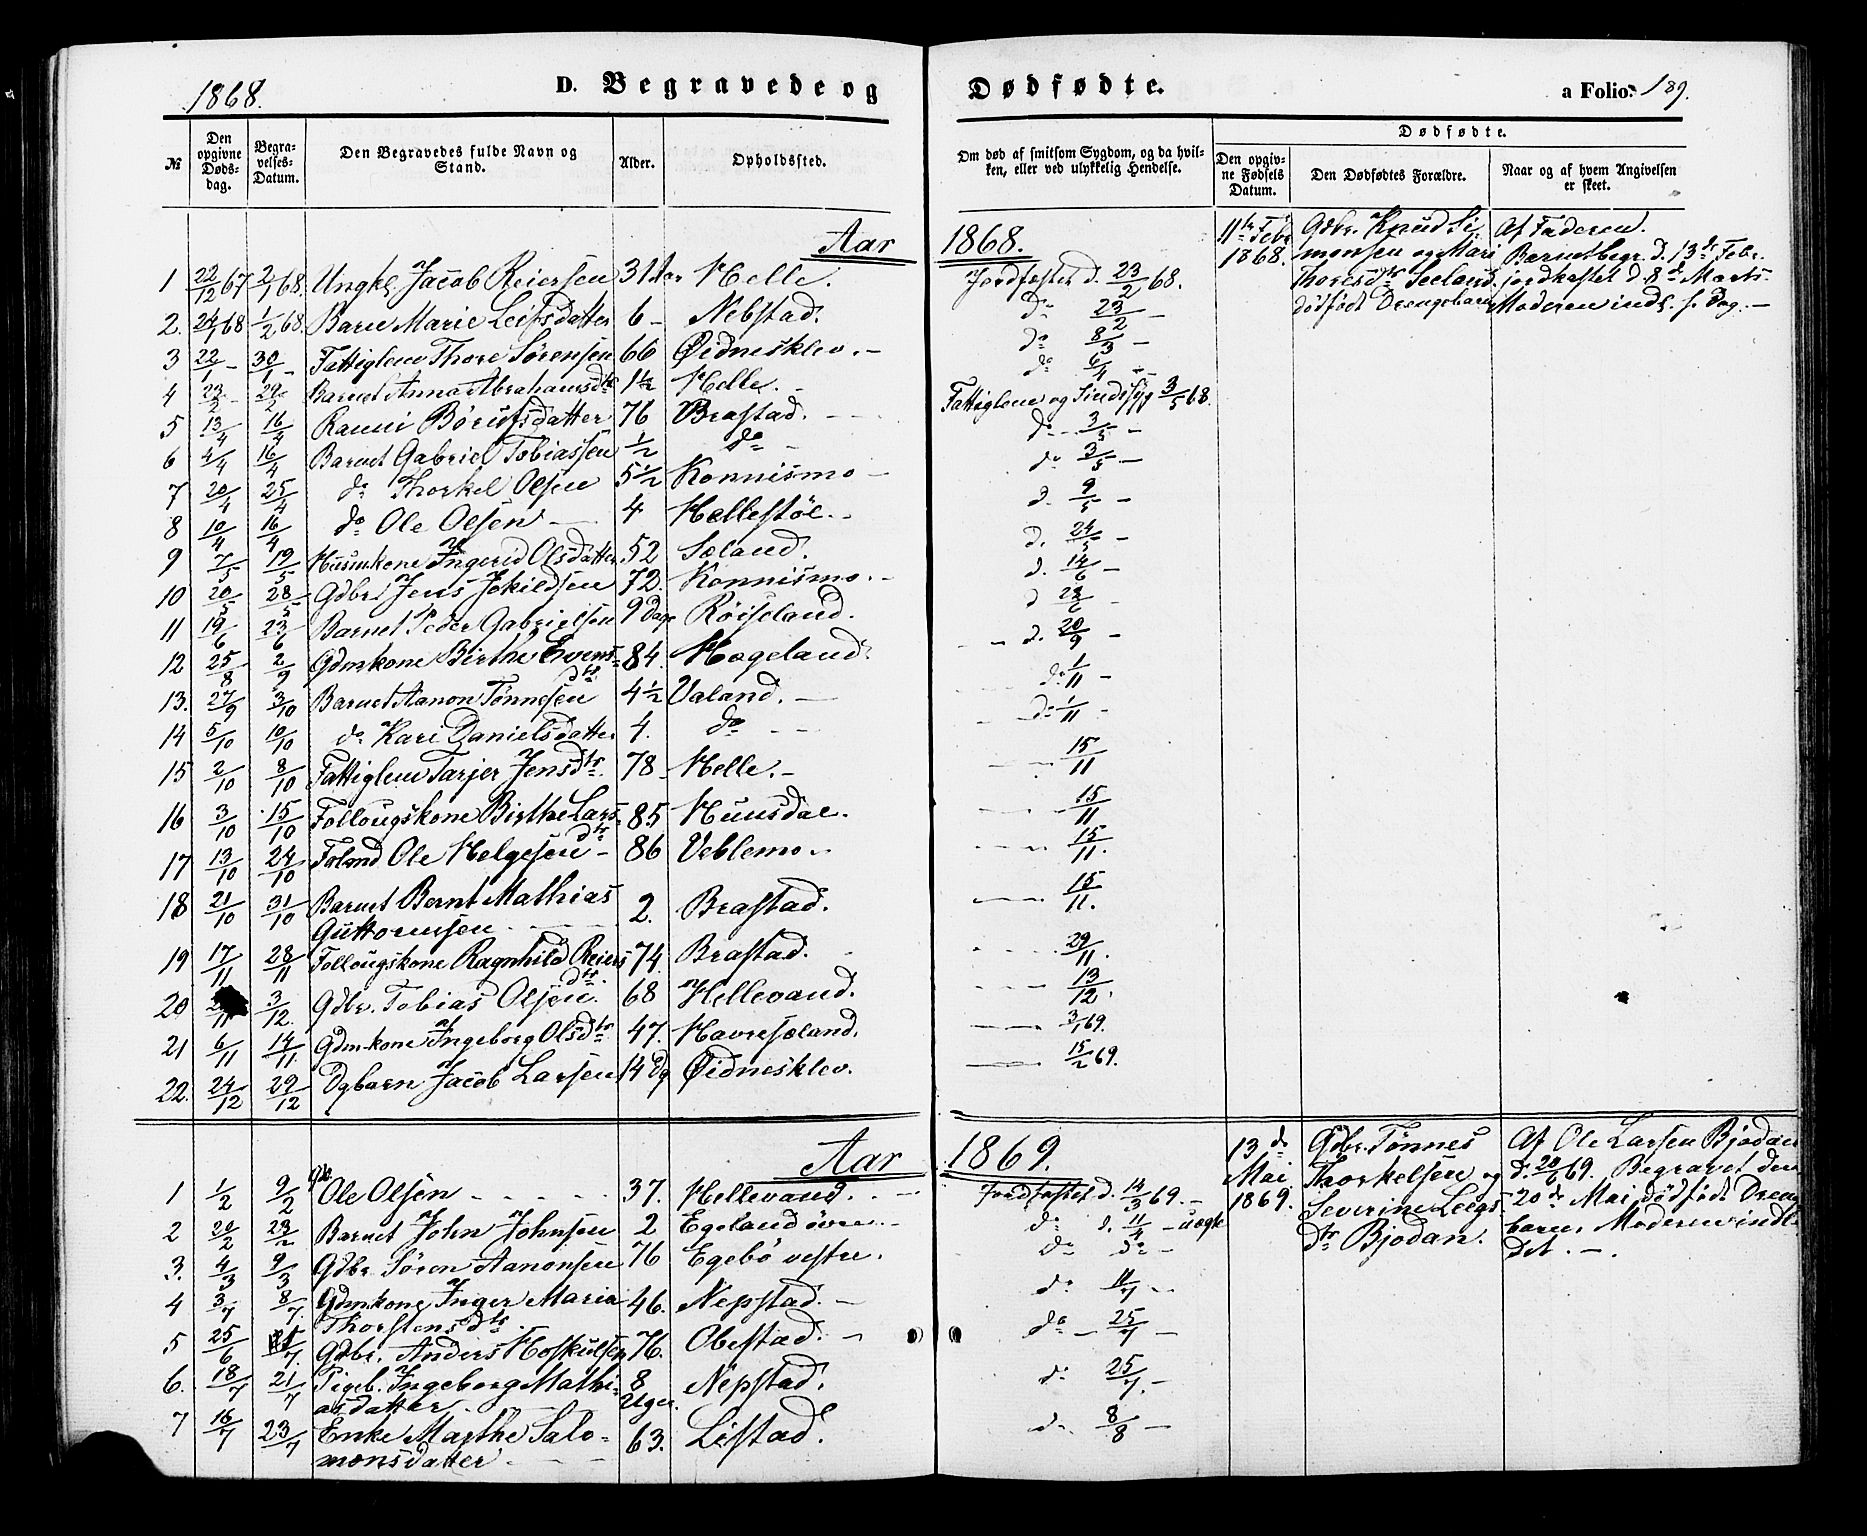 1868.
D. Begravede og
Dødfødte.
a Folio. 189.
№
Den opgivne Døds-dag.
Begra-velses-Datum.
Den Begravedes fulde Navn og Stand.
Alder.
Opholdssted.
Om død af smitsom Sygdom, og da hvil-ken, eller ved ulykkelig Hendelse.
Dødfødte.
Den opgiv-ne Fødsels Datum.
Den Dødfødtes Forældre.
Naar og af hvem Angivelsen er skeet.
Aar 1868.
1 22/12 67 2/1 68. Ungkl. Jacob Reiersen 31 Aar Helle. Jordfæstet d. 23/2 68.
2. 24/1 68 1/2 68. Barn Marie Leifsdatter 6 - Nebstad. do 23/2 -
3 22/1 - 30/1 - Fattiglem Thore Sørensen 66 Øidnesklev. - do 8/3 -
4 22/2 - 29/2 Barnet Anna Abrahamsdtr 1½ Helle. - do 6/4 -
5 13/4 16/4 Ranni Børufsdatter 76 Brastad. - Fattiglem og Sindssyg 3/5 68.
6 4/4 16/4 Barnet Gabriel Tobiassen ½ do - do - 3/5 -
7 20/4 25/4 do Thorkel Olsen 5½ Konnismo - do 3/5 -
8 10/4 16/4 do Ole Olsen - 4 Hellestöl. - d. 9/5 -
9 7/5 19/5 Husmkone Ingerid Olsdatter 52 Sæland. d. 24/5 -
10 20/5 28/5 Gdbr. Jens Jokildsen 72. Konnismo. - d. 14/6 -
11 19/6 23/6 Barnet Peder Gabrielsen 9 Dage Röiseland. d 28/6 -
12 25/8 2/9 Gdmkone Birthe Evensdtr 84. Hægeland. - d. 20/9 -
13. 27/9 3/10 Barnet Aanon Tönnesen 4½ Valand. - do 1/11 -
14 5/10 10/10 do Kari Danielsdatter 4. do - - do 1/11 -
15 2/10 8/10 Fattiglem Tarjer Jensdtr. 78 - Helle. - 15/11
16 3/10 15/10 Follougskone Birthe Larsdtr 85 Huusdal. 15/11
17 13/10 24/10 Folmd Ole Helgesen - 86 Veblemo. 15/11.
18 21/10 31/10 Barnet Bernt Mathias Guttormsen 2. Brastad. 15/11.
19 17/11 28/11 Follougskone Ragnhild Reiersdtr. 74. Brastad. 29/11.
20 /11 3/12. Gdbr. Tobias Olsen. 68 Hellevand. 13/12.
21 6/11 14/11 Gdm-kone Ingeborg Olsdtr 47. Havresæland. 3/1 69.
22. 24/12 29/12 Dgbarn Jacob Larsen 14 Dg Øidnesklev. 15/2 69.
11te Febr 1868.
Gdbr. Knud Si-
monsen og Mari
Thoresdtr Seeland.
dödfödt Drengebarn
Af Faderen.
Barnet begr. d. 13de Febr.
jordkastet d. 8de Marts.
Moderen indl. s. Dag. -
Aar 1869.
1 1/2 9/2 Ole Olsen - - - - - 37. Hellevand. - Jordfæstet d. 14/3 69. -
2 20/2 23/2 Barnet John Johnsen 2 Egeland övre. - do d. 11/4 - uægte
3. 4/3 9/3 Gdbr. Sören Aanonsen 76 Egebö vestre. do do -
4 3/7 8/7. Gdmkone Inger Maria Thorstensdtr. 46. Nepstad. - do 11/7 -
5 25/6 /7. Gdbr. Anders Hoskuldsen 76. Obestad. - do - 25/7 -
6. 18/7 21/7 Pigeb. Ingeborg Mathi-asdatter 8 Uger. Nepstad. do 25/7. -
7 16/7 23/7 Enke Marthe Salo-monsdatter 63. Listad. do 8/8 -
13de Mai 1869.
Gdbr. Tönnes
Thorkelsen og
Severine Leegs-
dtr Bjodan.
Af Ole Larsen Bjodan
d. 20/6 69. Begravet den
20de Mai, dödfödt Dreng
barn, Moderen indl.
det. -.